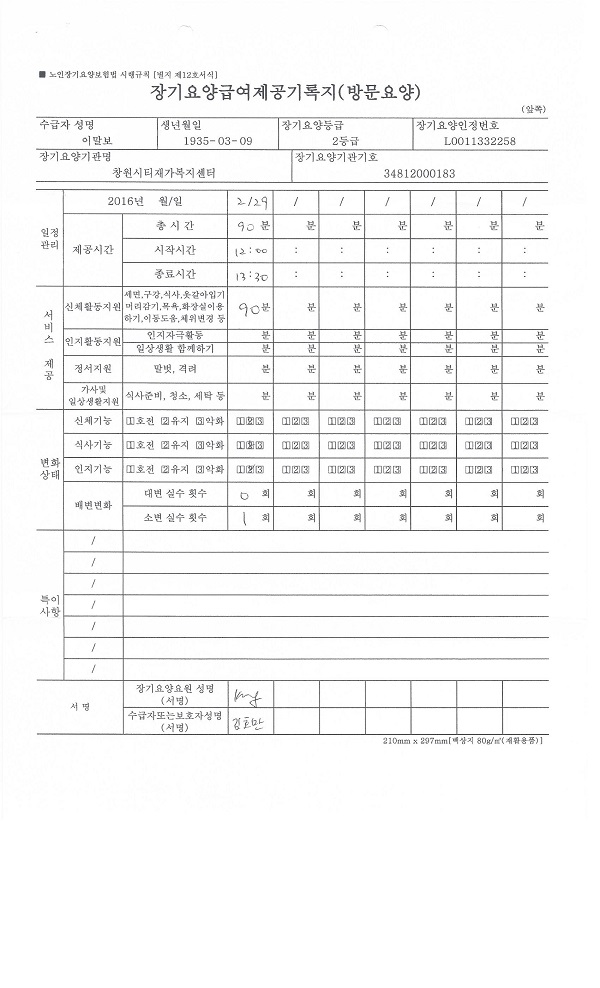 ■ 노인장기요양보험법 시행규칙 [별지 제12호서식]
장기요양급여제공기록지(방문요양)
(앞쪽)
수급자 성명 생년월일 장기요양등급 장기요양인정번호
이말보 1935-03-09 2등급 L0011332258
장기요양기관명 장기요양기관기호
창원시티재가복지센터 34812000183
2016년 월/일 2/29 / / / / / /
일정관리 제공시간 총 시 간 90 분 분 분 분 분 분 분
시작시간 12:00 : : : : : :
종료시간 13:30 : : : : : :
서비스 제공
신체활동지원 세면,구강,식사,옷갈아입기 머리감기,목욕,화장실이용 하기,이동도움,체위변경 등 90분 분 분 분 분 분 분
인지활동지원 인지자극활동 분 분 분 분 분 분 분
일상생활 함께하기 분 분 분 분 분 분 분
정서지원 말벗, 격려 분 분 분 분 분 분 분
가사및 일상생활지원 식사준비, 청소, 세탁 등 분 분 분 분 분 분 분
변화상태
신체기능 1호전 2유지 3악화 123 123 123 123 123 123 123
식사기능 1호전 2유지 3악화 123 123 123 123 123 123 123
인지기능 1호전 2유지 3악화 123 123 123 123 123 123 123
배변변화 대변 실수 횟수 0 회 회 회 회 회 회 회
소변 실수 횟수 1 회 회 회 회 회 회 회
특이사항
/
/
/
/
/
/
/
서 명 장기요양요원 성명
(서명)
수급자또는보호자성명
(서명)
210mm x 297mm[백상지 80g/㎡(재활용품)]